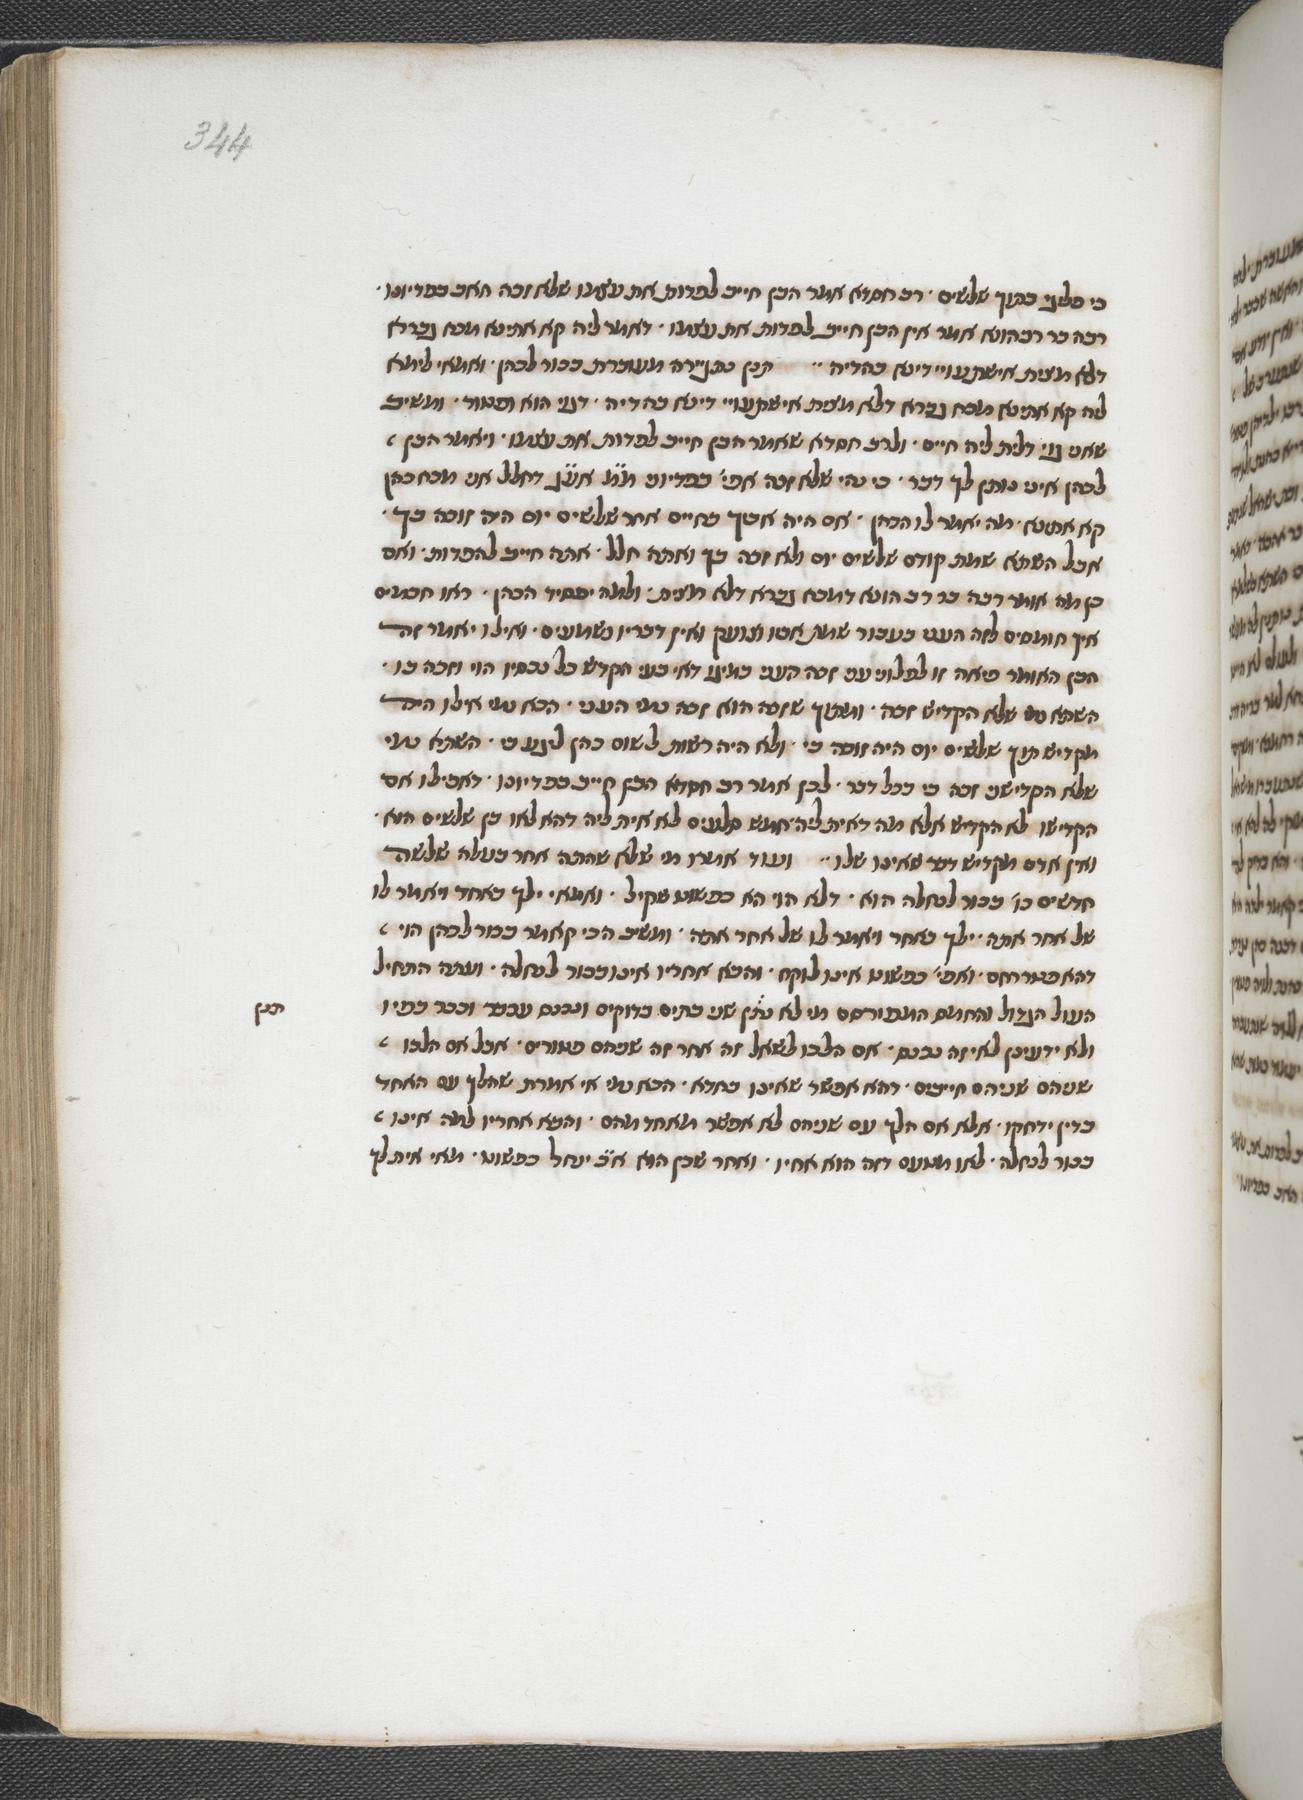 344
כי פליגי בתוך שלשים · רב חסדא אמר הבן חייב לפדות את עצמו שלא זכה האב בפדיונו ·
רבה בר רב הונא אמר אין הבן חייב לפדות את עצמו · דאמר ליה קא אתינא מכח גברא
דלא מצית אישתעויי דינא בהדיה ·· תנן בתניירה מעוברת בכור לכהן · ואמאי לימא
ליה קא אתינא מכח גברא דלא מצית אישתעויי דינא בהדיה · דגוי הוא ופטור · ומשיב
שאני גוי דלית ליה חייס · ולרב חסדא שאמר הבן חייב לפדות את עצמו · ויאמר הבן
לכהן איני נותן לך דבר · כי נהי שלא זכה אפי' בפדיוני דחלל אני מכח כהן
קא אתינא · מה יאמר לו הכהן · אם היה אביך בחיים אחר שלשים יום היה זוכה בך ·
אבל השתא שמת קודם שלשים יום ולא זכה בך ואתה חלל · אתה חייב להפדות · ואם
כן מה אומר רבה בר רב הונא דמכח גברא דלא מצית · ולמה יפסיד הכהן · ראו חכמים
איך חומסים לזה העני בעבור שמת אביו וצועק ואין דבריו נשמעים · ואילו יאמר זה
הבן האומר פיאה זו לפלוני עני זכה העני מיגו דאי בעי הקדיש כל נכסיו הוי זכה בו ·
השתא נמי שלא הקדיש זכה · ומתוך שזכה הוא זכה נמי העני · הכא נמי אילו היה
מקדיש תוך שלשים יום היה זוכה בי · ולא היה רשות לשום כהן ליגע בי · השתא נמי
שלא הקדישני זכה בי בכל דבר · לכן אמר רב חסדא הבן חייב בפדיונו · דאפילו אם
הקדישו לא הקדיש אלא מה דאית ליה חמש סלעים לא אית ליה דהא לאו בן שלשים הוא ·
ואין אדם מקדיש דבר שאינו שלו ·· ועוד אמרו מי שלא שהתה אחר בעלה שלשה
חדשים כו' בכור לנחלה הוא · דלא הוי הא כפשוט שקיל · ואמאי ילך באחד ויאמר לו
של אחר אתה · ילך כאחר ויאמר לו של אחר אתה · ומשיב הכי קאומר בכור לכהן הוי
דהא פטר רחם · ואפי' כפשוט אינו לוקח · והבא אחריו אינו בכור לנחלה · ועתה התחיל
העול הגדול והחמס המפורסם מי לא תנן שני בתים בדוקים ונכנס עכבר וככר בפיו
ולא ידעינן לאי זה נכנס · אם הלכו לשאל זה אחר זה שניהם טהורים · אבל אם הלכו
שניהם שניהם חייבים · דהא אפשר שאינו בחדא · הכא נמי אי אמרת שהלך עם האחד
כדין ידחקו · אלא אם הלך עם שניהם לא אפשר מאחד מהם · והבא אחריו למה אינו
בכור לנחלה · לאו מטעם דזה הוא אחיו · ואחר שכן הוא א"כ ינחל כפשוט · מאי אית לך
תנן